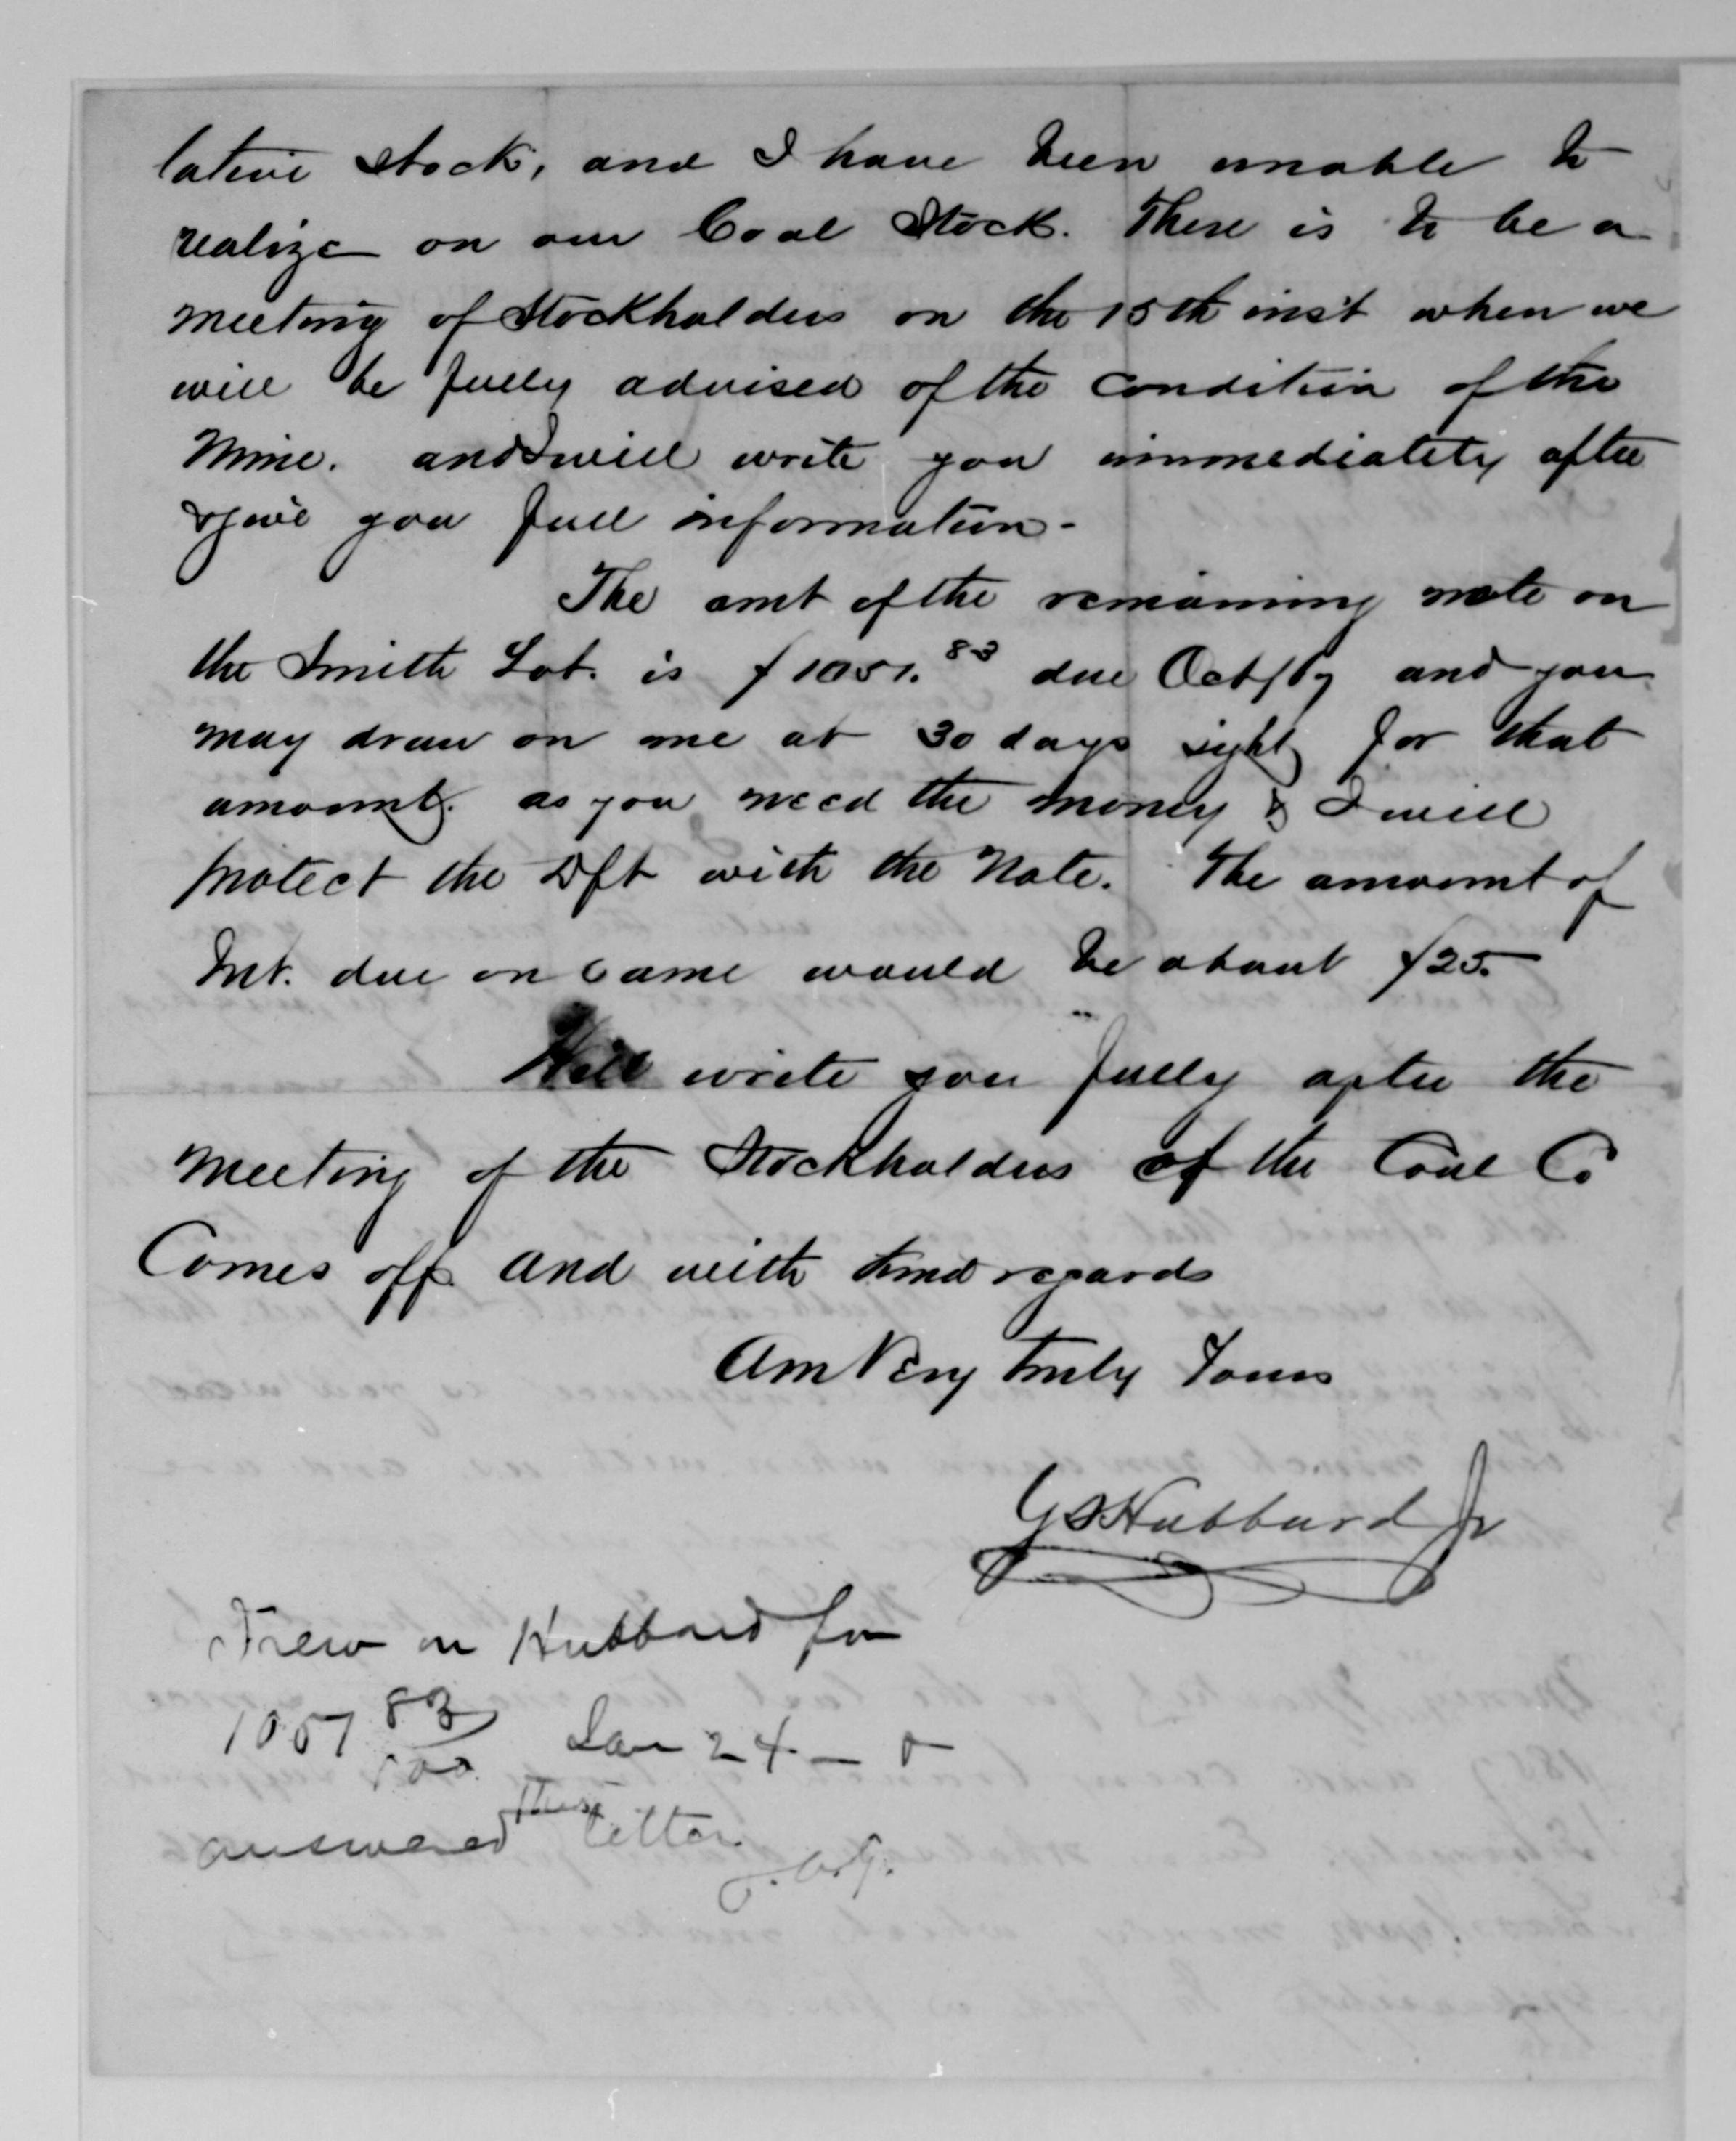 lative stock, and I have been unable to
realize on our Coal Stock. There is to be a
meeting of Stockholders on the 15th inst when we
will be fully advised of the condition of the
Mine. and I will write you immediately after
& give you full information -
The amt of the remaining note on
the Smith Lot. is $1051.83 due Oct/67 and you
may draw on me at 30 days sight for that
amount. as you need the money & I will
protect the Dft with the Note. The amount of
Int. due on same would be about $25.
Will write you fully after the
meeting of the Stockholders of the Coal Co
Comes off and with kind regards
Am Very truly Yours
G S Hubbard Jr
Drew on Hubbard for
1051 83/100 Jan 24 –
answered this letter